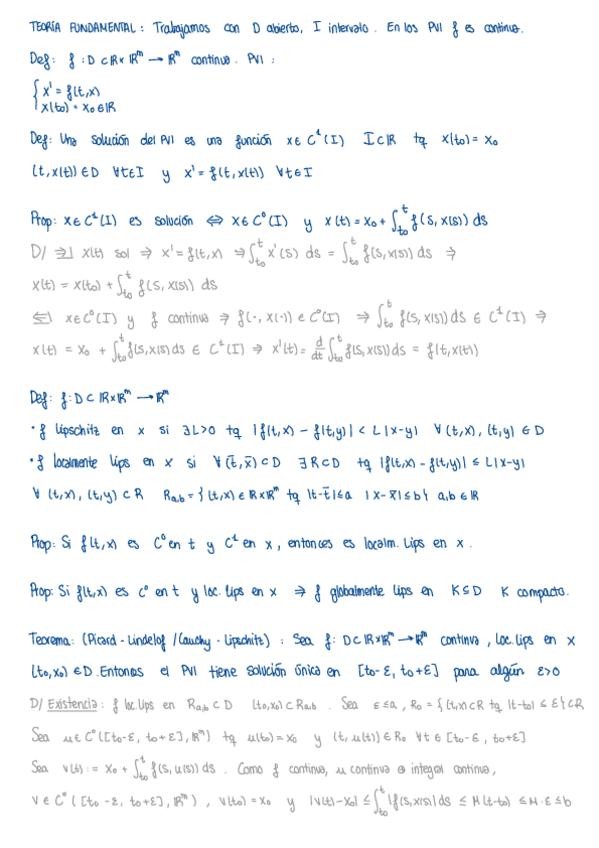 TEORÍA FUNDAMENTAL: Trabajamos con D abierto, I intervalo. En los PVI f es continua.
Def: f: D ⊂ ℝ×ℝᵐ → ℝᵐ continua. PVI:
{ x' = f(t,x)
x(t₀) = x₀ ∈ ℝ
Def: Una solución del PVI es una función x ∈ C¹(I) I ⊂ ℝ tq x(t₀) = x₀
(t, x(t)) ∈ D ∀t ∈ I y x' = f(t, x(t)) ∀t ∈ I
Prop: x ∈ C¹(I) es solución ⇔ x ∈ C⁰(I) y x(t) = x₀ + ∫_{t₀}^{t} f(s, x(s)) ds
D/ ⇒] x(t) sol ⇒ x' = f(t,x) ⇒ ∫_{t₀}^{t} x'(s) ds = ∫_{t₀}^{t} f(s, x(s)) ds ⇒
x(t) = x(t₀) + ∫_{t₀}^{t} f(s, x(s)) ds
⇐] x ∈ C⁰(I) y f continua ⇒ f(·, x(·)) ∈ C⁰(I) ⇒ ∫_{t₀}^{t} f(s, x(s)) ds ∈ C¹(I) ⇒
x(t) = x₀ + ∫_{t₀}^{t} f(s, x(s)) ds ∈ C¹(I) ⇒ x'(t) = d/dt ∫_{t₀}^{t} f(s, x(s)) ds = f(t, x(t))
Def: f: D ⊂ ℝ×ℝᵐ → ℝᵐ
· f Lipschitz en x si ∃L>0 tq |f(t,x) - f(t,y)| < L|x-y| ∀(t,x), (t,y) ∈ D
· f localmente Lips en x si ∀(t̄, x̄) ⊂ D ∃R ⊂ D tq |f(t,x) - f(t,y)| ≤ L|x-y|
∀ (t,x), (t,y) ⊂ R R_{a,b} = {(t,x) ∈ ℝ×ℝᵐ tq |t-t̄| ≤ a |x-x̄| ≤ b} a,b ∈ ℝ
Prop: Si f(t,x) es C⁰ en t y C¹ en x, entonces es localm. Lips en x.
Prop: Si f(t,x) es C⁰ en t y loc. Lips en x ⇒ f globalmente Lips en K ⊆ D K compacto.
Teorema: (Picard-Lindelof / Cauchy-Lipschitz): Sea f: D ⊂ ℝ×ℝᵐ → ℝᵐ continua, Loc. Lips en x
(t₀, x₀) ∈ D. Entonces el PVI tiene solución única en [t₀-ε, t₀+ε] para algún ε>0
D/ Existencia: f loc. Lips en R_{a,b} ⊂ D (t₀, x₀) ⊂ R_{a,b}. Sea ε ≤ a, R₀ = {(t,x) ⊂ R tq |t-t₀| ≤ ε} ⊂ R
Sea u ∈ C⁰([t₀-ε, t₀+ε], ℝᵐ) tq u(t₀) = x₀ y (t, u(t)) ∈ R₀ ∀t ∈ [t₀-ε, t₀+ε]
Sea v(t) := x₀ + ∫_{t₀}^{t} f(s, u(s)) ds. Como f continua, u continua e integral continua,
v ∈ C⁰([t₀-ε, t₀+ε], ℝᵐ), v(t₀) = x₀ y |v(t)-x₀| ≤ ∫_{t₀}^{t} |f(s, x(s)| ds ≤ M(t-t₀) ≤ M·ε ≤ b